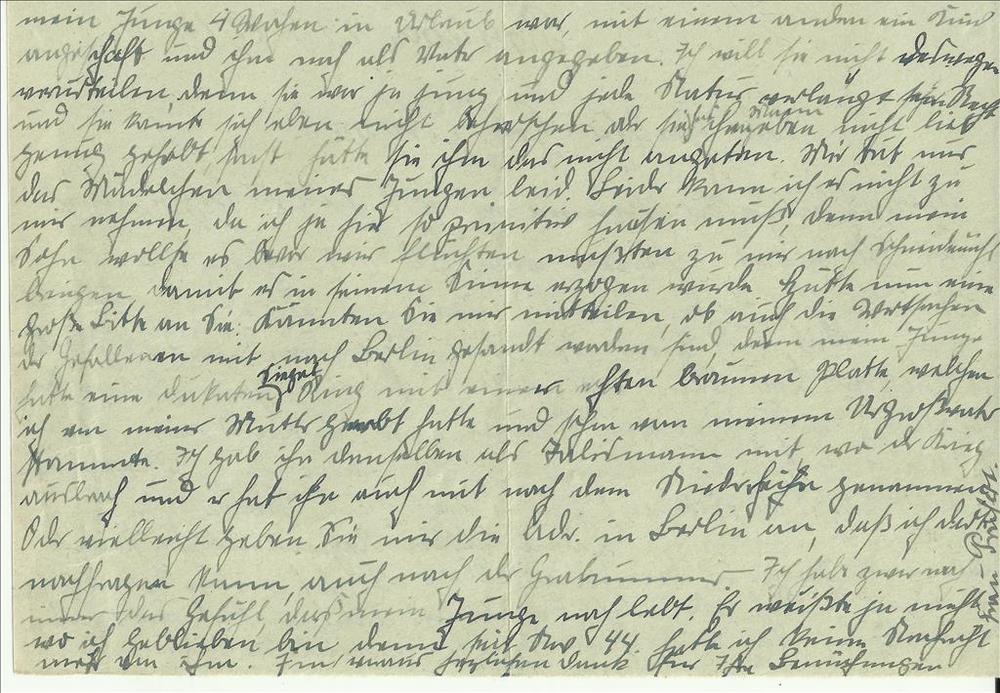 mein Junge 4 Wochen in Urlaub war, mit einem anden ein Kind
angeschafft und ihm noch als Vater angegeben. Ich will sie nicht deswegen
verurteilen, denn sie war ja jung und jede Natur verlangt sein Recht
und sie kannte sich eben nicht beherschen aber sie ihren Mann eben nicht lieb
genug gehabt sonst hätte sie ihm das nicht angetan. Mir tut nur
das Mädelchen meines Jungen leid. Leider kann ich es nicht zu
mir nehmen, da ich ja hier so primitiv hausen muß, denn mein
Sohn wollte es bevor wir flüchten mußten zu mir nach Schneidemühl
bringen, damit es in seinem Sinne erzogen wurde. Hätte nun eine
große Bitte an Sie: Könnten Sie mir mitteilen, ob auch die Wertsachen
der Gefallenen mit nach Berlin gesandt worden sind, denn mein Junge
hatte eine dukaten Siegel Ring mit einer echten braunen Platte, welchen
ich von meiner Mutter geerbt hatte und schon von meinem Urgroßvater
stammte. Ich gab ihn denselben als Talismann mit wo der Krieg
ausbrach und er hat ihn auch mit nach dem Niederrhein genommen
Oder vielleicht geben Sie mir die Adr. in Berlin an, daß ich dort
nachfragen kann, auch nach der Grabnummer. Ich habe zwar noch
immer das Gefühl, daß mein Junge noch lebt. Er wüßte ja nicht
wo ich geblieben bin denn seit Nov 44. hatte ich keine Nachricht
mehr von ihm. Im voraus herzlichen Dank für Ihre Bemühungen